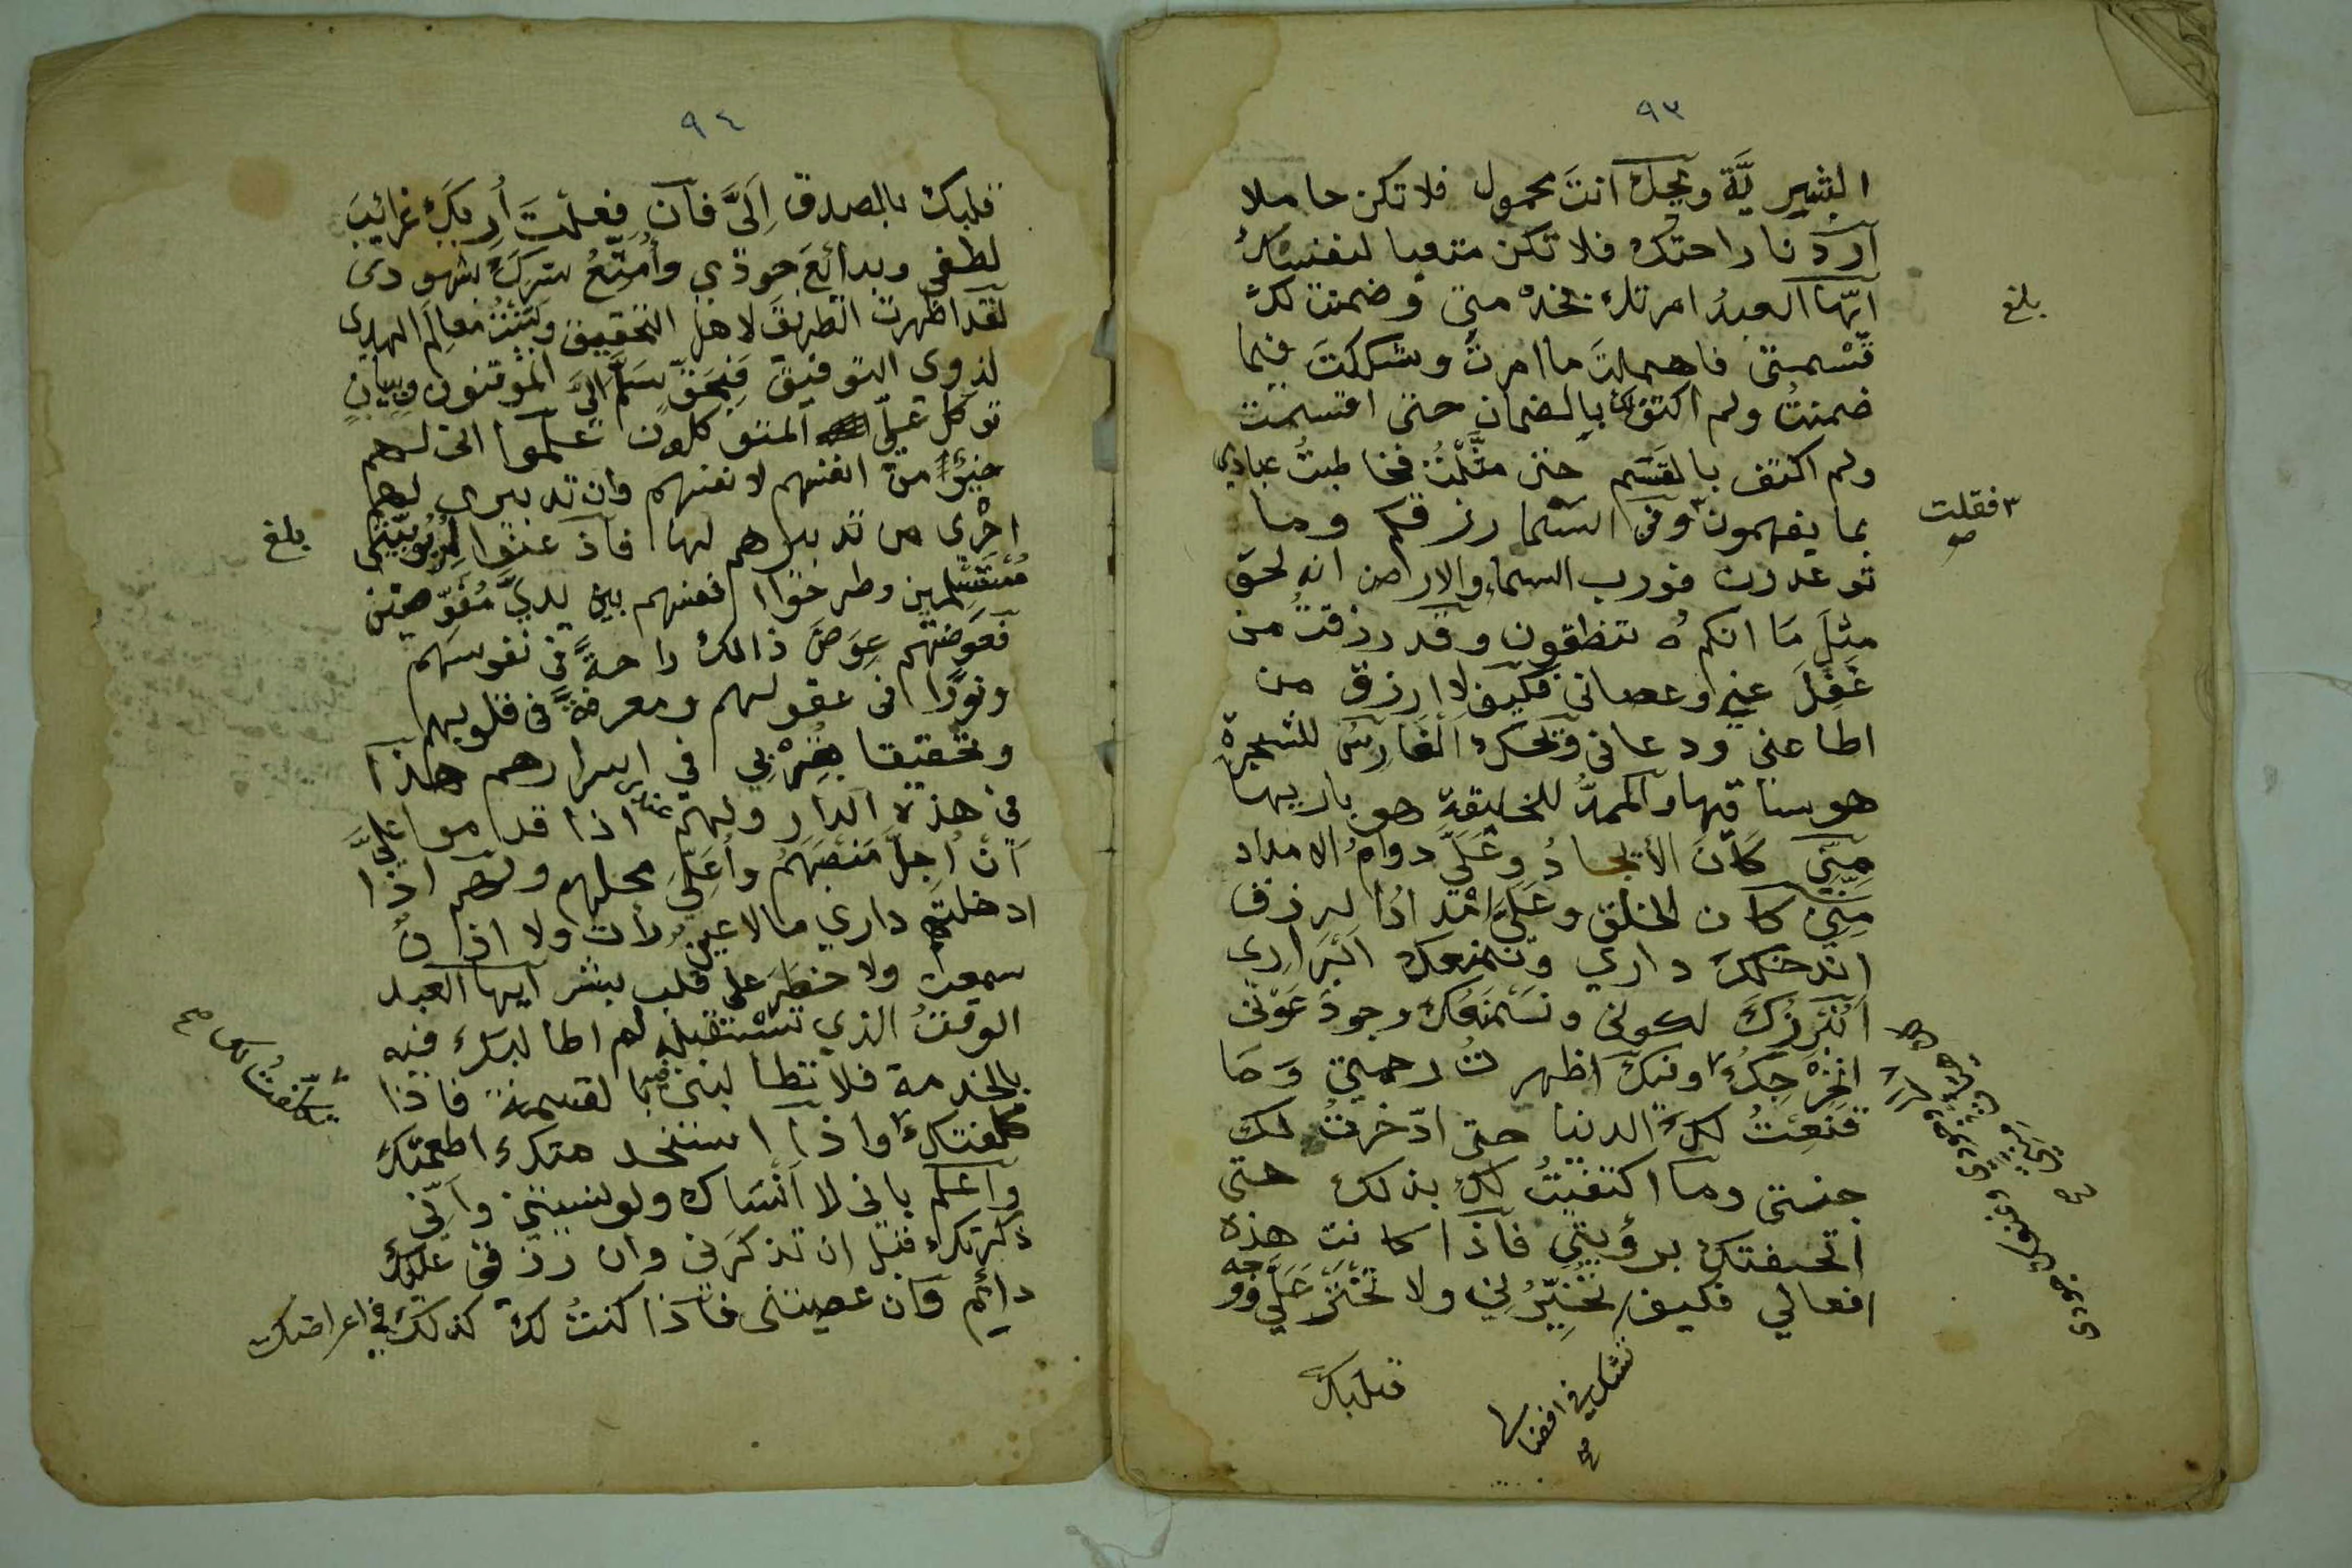 ٩٣
البشرية ويحك انتَ محمول فلا تكن حاملا
اردنا راحتك فلا تكن متعبا لنفسك
ايها العبدُ امرتك بخدمتي وضمنت لك
قسمتي فاهملتَ ما امرتُ وشككتَ فيما
ضمنتُ ولم اكتف لك بالضمان حتى اقسمت
ولم اكتف بالقسم حتى مثّلتُ فخاطبتُ عبادي
بما يفهمون وفي السما رزقكم وما
توعدون فورب السماء والارض انه لحق
مثلَ مَا انكم تنطقون وقد رزقتُ من
غَفَلَ عني وعصاني فكيف لا ارزق من
اطاعني ودعاني ويحك الغارسُ للشجرة
هو ساقيها والممدُّ للخليقة هو باريها
مِنّي كان الايجادُ وعَلَيَّ دوامُ الامداد
مِنّي كان الخلق وعَلَيَّ
اندخلك داري ونمنعك ابراري
انبرزك لكوني ونمنعك وجودَ عوني
اظهرتُ رحمتي وَمَا
قنعتُ لك الدنيا حتى ادّخرتُ لك
جنتي وما اكتفيتُ لك بذلك حتى
اتحفتك برؤيتي فاذا كانت هذه
افعالي فكيف
بلغ
٣ فقلت
تشك في افضالها
قلبك
٩٤
قلبك بالصدق اِلَيَّ فان فعلتَ أريك غرائبَ
لطفي وبدائعَ جودي وأُمَتّعُ سرّكَ بشهودي
لقد اظهرت الطريقَ لاهل التحقيق وبَيّنتُ معالم الهدى
لذوي التوفيق فبحقّ سَلّم اليَّ الموقنون وببيانٍ
توكل عليّ المتوكلون علموا اني لهم
خيرٌ من انفسهم لانفسهم وان تدبيري لهم
اجْرى من تدبيرهم لها فاذعنوا لربوبيتي
مستسلمين وطرحوا انفسهم بين يديَّ مفوّضين
فعوضتهم عِوَضَ ذالك راحةً في نفوسهم
ونورًا في عقولهم ومعرفةً في قلوبهم
وتحقيقا بقربي في اسرارهم هذا
في هذه الدار ولهم عندي اذا قدموا عليَّ
اَنْ اُجلّ منصبَهُم وأُعلِيَ محلهم ولهم اذا
ادخلتهم داري ما لا عينٌ رات ولا اذنٌ
سمعت ولا خطرَ على قلب بشر ايها العبد
الوقتُ الذي تستقبله لم اطالبك فيه
بالخدمة فلا تطالبني فيه بالقسمة فاذا
كلفتك واذا استخدمتك اطعمتك
واعلم باني لا اَنْسَاك ولو نسيتني واَنّي
ذكرتك قبل ان تذكرني وان رزقي عليك
دائم وان عصيتني فاذا كنتُ لك كذلك في اعراضك
بلغ